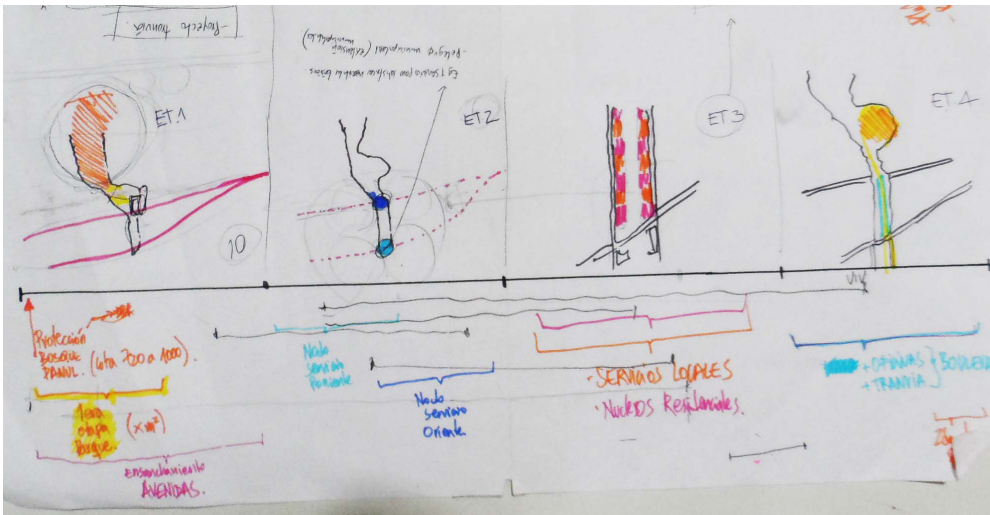 -Proyecto tranvía.
ET.1
10
ET 2
ET 3
ET.4
Protección
BOSQUE
PANUL. (cota 700 a 1000).
1era
etapa
parque.
(x m²)
Ensanchamiento
AVENIDAS.
Nodo
Servicio
Poniente
Nodo
Servicio
Oriente.
- SERVICIOS LOCALES
· Nucleos Residenciales.
+ OFICINAS
+ TRANVÍA